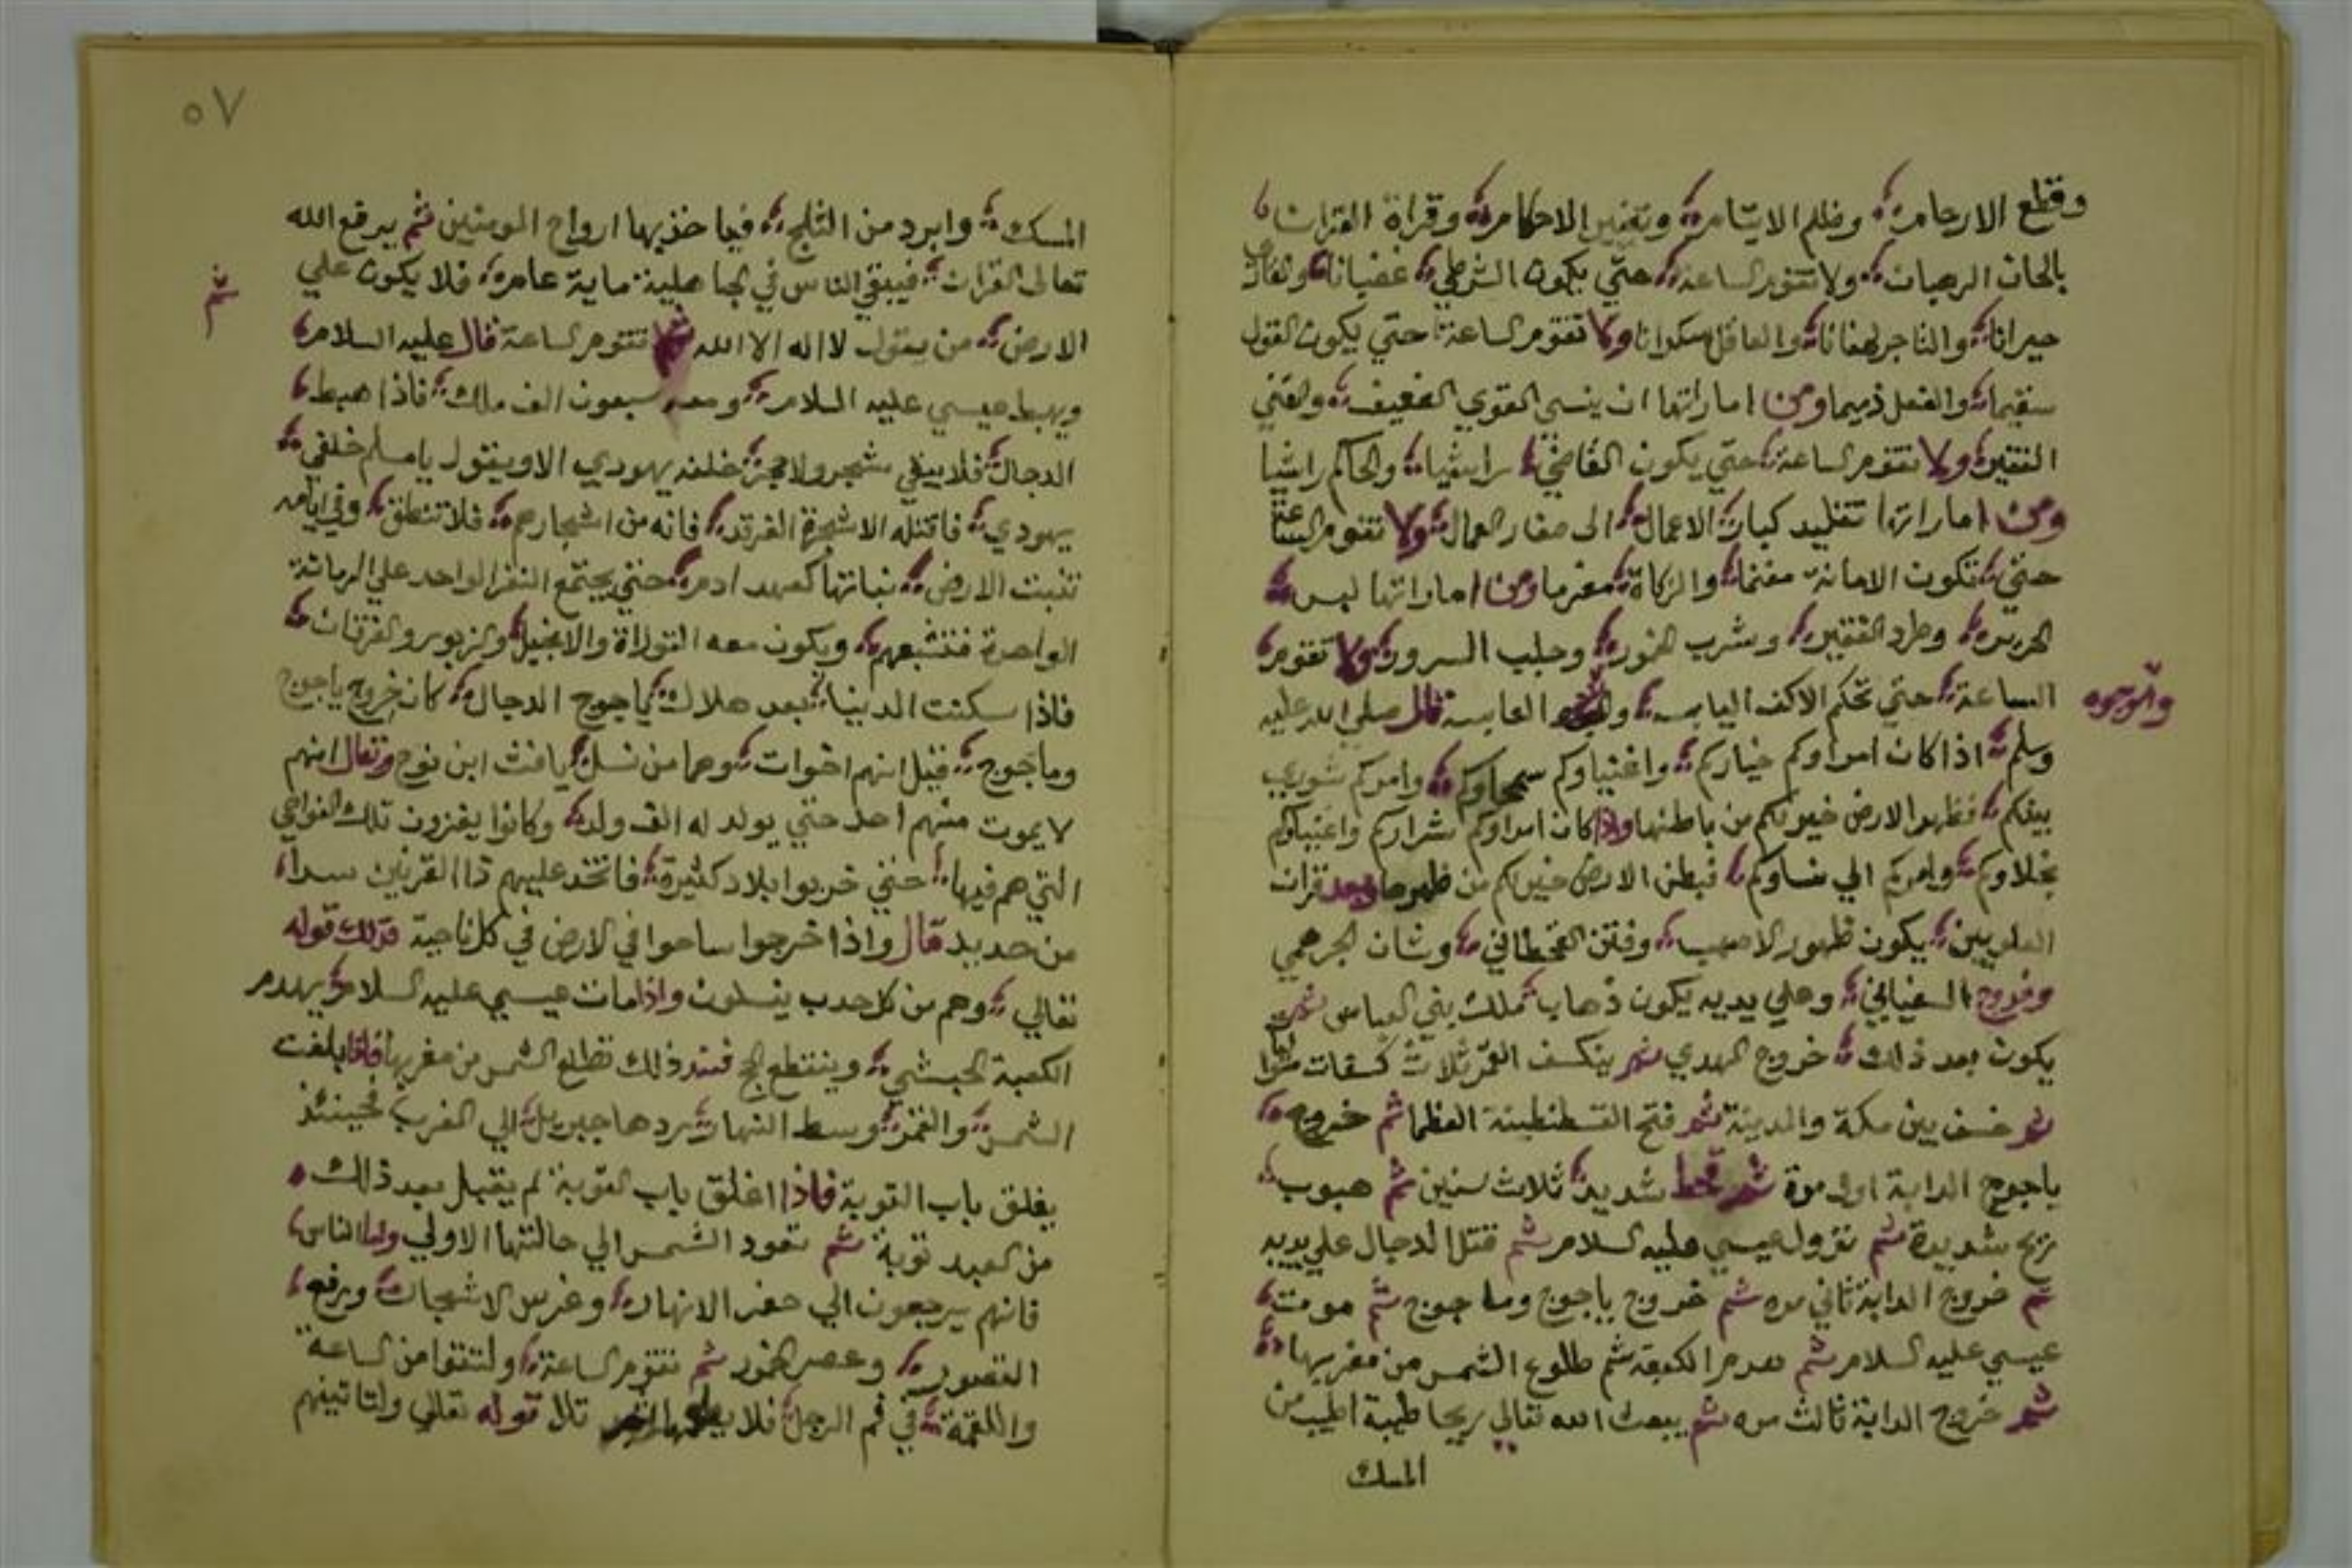 وقطع الارحام وظلم الايتام وتغيير الاحكام وقراة القران
بالحان الرهبان ولا تقوم الساعة حتي يكون الشرطي غضبانا
حيرانا والتاجر لهفانا والعاقل سكرانا ولا تقوم الساعة حتي يكون القول
سقيما والفعل ذميما ومن اماراتها ان ينسي القوي الضعيف والغني
الفقير ولا تقوم الساعة حتي يكون القاضي والحاكم راشيا
ومن اماراتها تقليد كبار الاعمال الى صغار العمال ولا تقوم الساعة
حتي تكون الامانة مغنما والزكاة مغرما ومن اماراتها لبس
الحرير وطرد الفقير وشرب الخمور وجلب السرور ولا تقوم
والوجوه
الساعة حتي تحكم الاكف اليابسه العابسه قال صلي الله عليه
وسلم اذا كان امراوكم خياركم واغنياوكم سمحاوكم وامركم شوري
بينكم فظهر الارض خير لكم من باطنها واذا كان امراوكم شراركم واغنياوكم
بخلاوكم وامركم الي نساوكم فبطن الارض خير لكم من ظهرها وبعد قران
العلويين يكون ظهور الاصهب وفتن القحطاني وشان الجرهمي
وخروج السفياني وعلي يديه يكون ذهاب ملك بني العباس ثم
يكون بعد ذلك خروج المهدي ثم ينكسف القمر ثلاث كسفات
ثم خسف بين مكة والمدينة ثم فتح القسطنطينة العظما ثم خروج
ياجوج الدابة اول مرة ثم قحط شديد ثلاث سنين ثم هبوب
ريح شديدة ثم نزول عيسي عليه السلام ثم قتل الدجال علي يديه
ثم خروج الدابة ثاني مره ثم خروج ياجوج وماجوج ثم موت
عيسي عليه السلام ثم هدم الكعبة ثم طلوع الشمس من مغربها
ثم خروج الدابة ثالث مره ثم يبعث الله تعالي ريحا طيبة اطيب من
المسك
٥٧
المسك وابرد من الثلج فياخذ بها ارواح المومنين ثم يرفع الله
تعالى القران فيبقي الناس في الجاهلية ماية عام فلا يكون علي
ثم
الارض من يقول لا اله الا الله تقوم الساعة قال عليه السلام
ويهبط عيسي عليه السلام ومعه سبعون الف ملك فاذا هبط
الدجال فلا يبقي شجر ولا حجر خلفه يهودي الا ويقول يا مسلم خلفي
يهودي فاقتله الا شجرة الغرقد فانه من اشجارهم فلا تنطق وفي ايامه
تنبت الارض نباتها كعهد ادم حتي يجتمع النفر الواحد علي الرمانة
الواحدة فتشبعهم ويكون معه التوراة والانجيل والزبور والفرقان
فاذا سكنت الدنيا بعد هلاك الدجال كان خروج ياجوج
وماجوج قيل انهم اخوات وهما من نسل يافث ابن نوح ويقال انهم
لا يموت منهم احد حتي يولد له الف ولد وكانوا يغزون تلك النواحي
التي هم فيها حتي خربوا بلاد كثيرة فاتخذ عليهم ذا القرنين سدا
من حديد قال واذا خرجوا ساحوا في الارض في كل ناحية فذلك قوله
تعالي وهم من كل حدب ينسلون واذا مات عيسي عليه السلام يهدم
الكعبة الحبشي وينقطع الحج فعند ذلك تطلع الشمس من مغربها فاذا بلغت
الشمس والقمر وسط النهار يردها جبريل الي المغرب فحينئذ
يغلق باب التوبة فاذا اغلق باب التوبة لم يقبل بعد ذلك
من العبد توبة ثم تعود الشمس الي حالتها الاولي واما الناس
فانهم يرجعون الي حفر الانهار وغرس الاشجار ورفع
القصور وعصر الخمور ثم تقوم الساعة من الساعة
واللقمة في فم الرجل فلا قوله تعالي ولتاتينهم